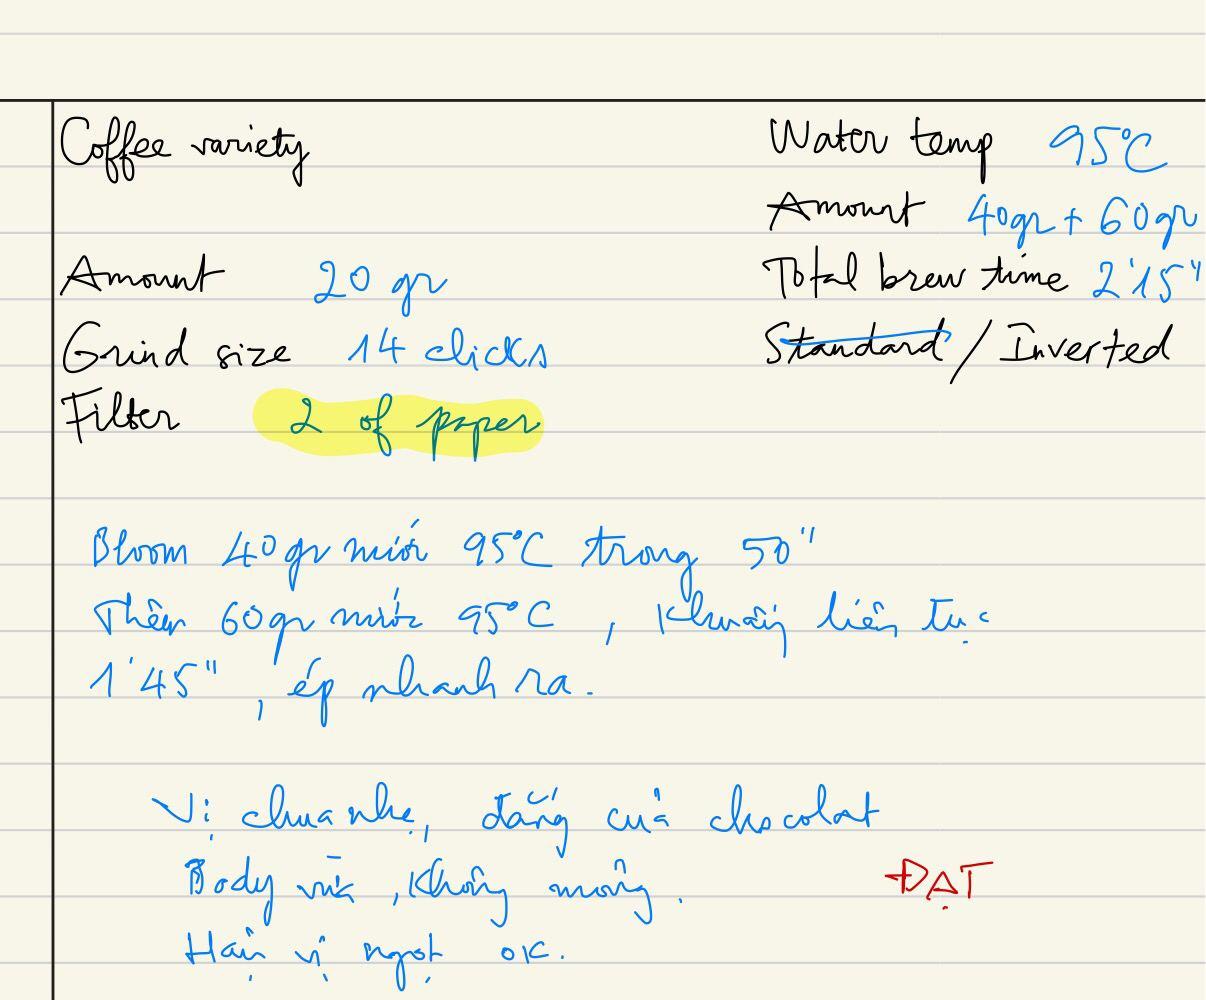 Coffee variety
Water temp 95°C
Amount 40gr + 60gr
Amount 20 gr
Total brew time 2'15"
Grind size 14 clicks
Standard / Inverted
Filter 2 of paper
Bloom 40gr nước 95°C trong 50"
Thêm 60gr nước 95°C, Khuấy liên tục
1'45", ép nhanh ra.
Vị chua nhẹ, đắng của chocolat
Body vừa, Không mỏng.
ĐẠT
Hậu vị ngọt OK.